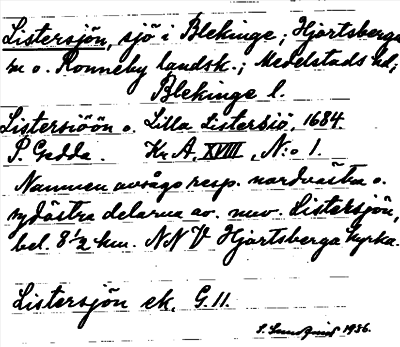 Listersjön, sjö i Blekinge; Hjortsberga
sn o. Ronneby landsk.; Medelstads hd;
Blekinge l.
Listersiöön o. Lilla Listersiö, 1684.
P. Gedda. Kr A, XVIII, N:o 1.
Namnen avsågo resp. nordvästra o.
sydöstra delarna av nuv. Listersjön,
bel. 8 1/2 km. NNV Hjortsberga kyrka.
Listersjön ek. G. 11.
1936.